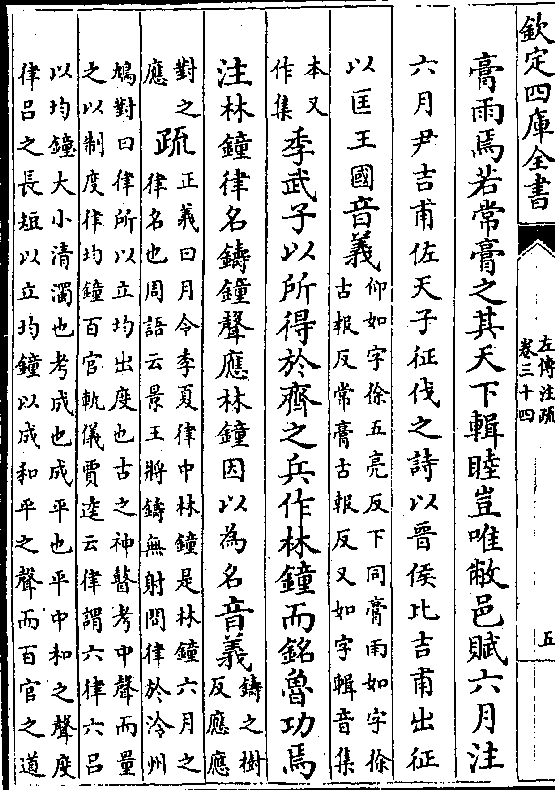 欽定四庫全書
左傳注疏
卷三十四
五
膏雨焉若常膏之其天下輯睦豈唯敝邑賦六月注
六月尹吉甫佐天子征伐之詩以晉侯比吉甫出征
以匡王國音義
仰如字徐五亮反下同膏雨如字徐
古報反常膏古報反又如字輯音集
本又
作集
季武子以所得於齊之兵作林鐘而銘魯功焉
注林鐘律名鑄鐘聲應林鐘因以為名音義
鑄之樹
反應應
對之
應
疏
正義曰月令季夏律中林鐘是林鐘六月之
律名也周語云景王將鑄無射問律於泠州
鳩對曰律所以立均出度也古之神瞽考中聲而量
之以制度律均鐘百官軌儀賈逵云律謂六律六呂
以均鐘大小清濁也考成也成平也平中和之聲度
律呂之長短以立均鐘以成和平之聲而百官之道